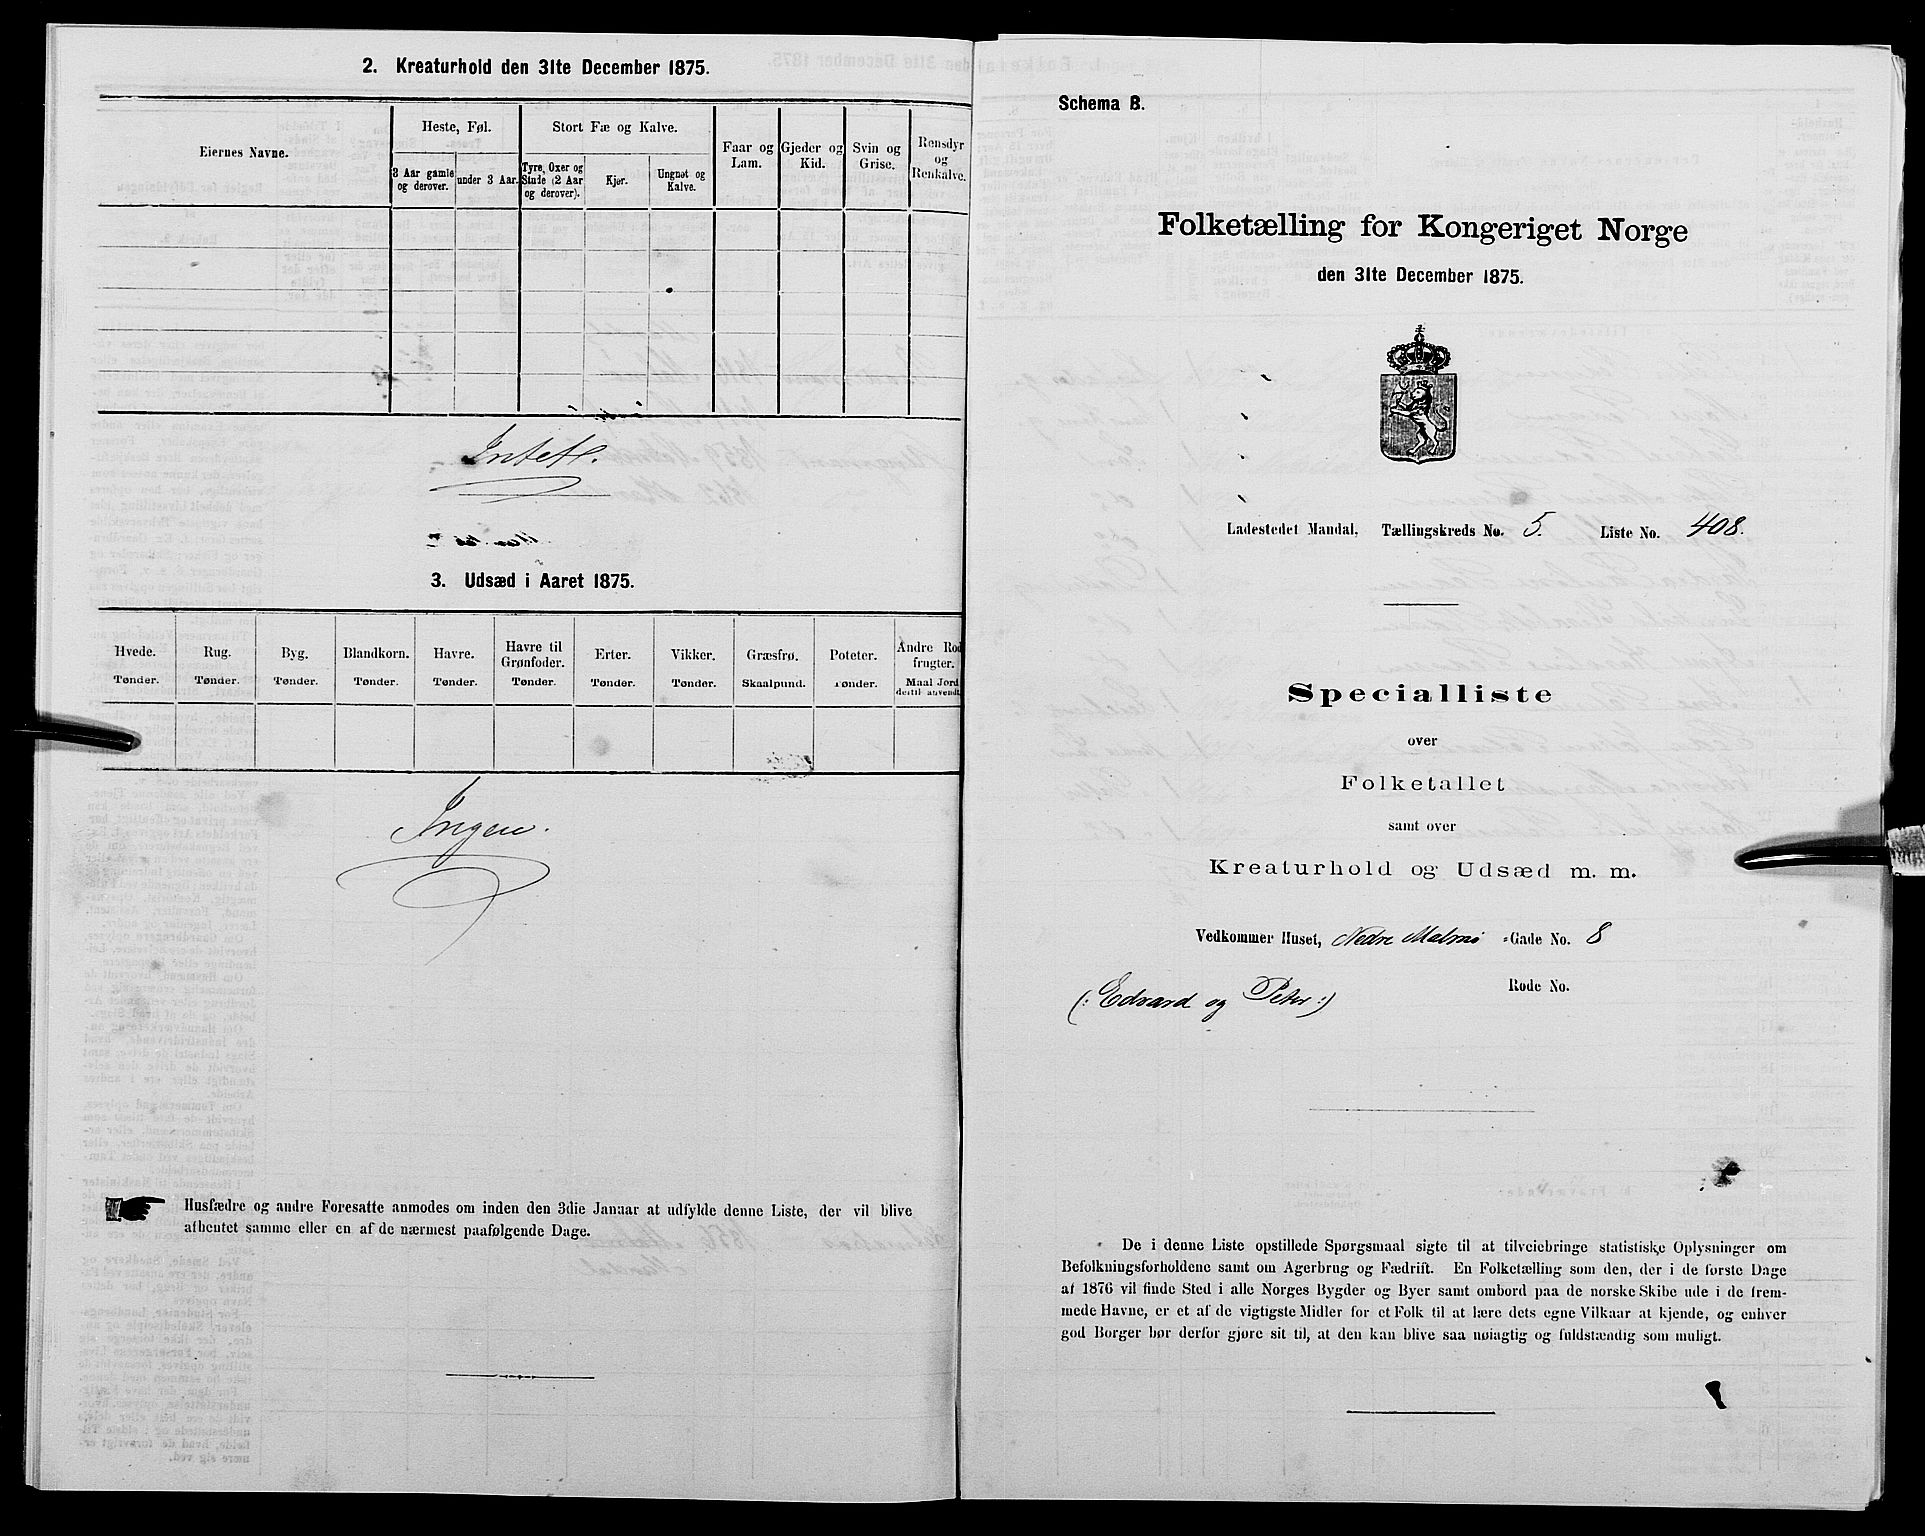 2. Kreaturhold den 31te December 1875.
Eiernes Navne.
Heste, Føl.
Stort Fæ og Kalve.
Faar og Lam.
Gjeder og Kid.
Svin og Grise.
Rensdyr og Renkalve.
3 Aar gamle og derover.
under 3 Aar.
Tyre, Oxer og Stude (2 Aar og derover).
Kjør.
Ungnøt og Kalve.
Intet.
3. Udsæd i Aaret 1875.
Hvede. Tønder.
Rug. Tønder.
Byg. Tønder.
Blandkorn. Tønder.
Havre. Tønder.
Havre til Grønfoder. Tønder.
Erter. Tønder.
Vikker. Tønder.
Græsfrø. Skaalpund.
Poteter. Tønder.
Andre Rodfrugter. Maal Jord dertil anvendt.
Ingen.
Husfædre og andre Foresatte anmodes om inden den 3die Januar at udfylde denne Liste, der vil blive
afhentet samme eller en af de nærmest paafølgende Dage.
Schema B.
Folketælling for Kongeriget Norge
den 31te December 1875.
Ladestedet Mandal, Tællingskreds No. 5. Liste No. 408.
Specialliste
over
Folketallet
samt over
Kreaturhold og Udsæd m. m.
Vedkommer Huset, Nedre Malmø -Gade No. 8
Rode No.
(: Edvard og Peter :)
De i denne Liste opstillede Spørgsmaal sigte til at tilveiebringe statistiske Oplysninger om
Befolkningsforholdene samt om Agerbrug og Fædrift. En Folketælling som den, der i de første Dage
af 1876 vil finde Sted i alle Norges Bygder og Byer samt ombord paa de norske Skibe ude i de frem-
mede Havne, er et af de vigtigste Midler for et Folk til at lære dets egne Vilkaar at kjende, og enhver
god Borger bør derfor gjøre sit til, at den kan blive saa nøiagtig og fuldstændig som muligt.